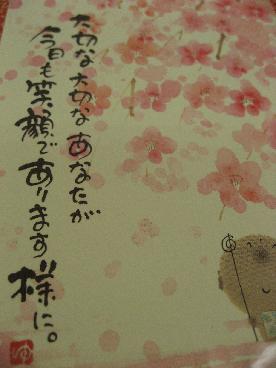 大切な大切なあなたが
今日も笑顔であります
様に。
ゆ